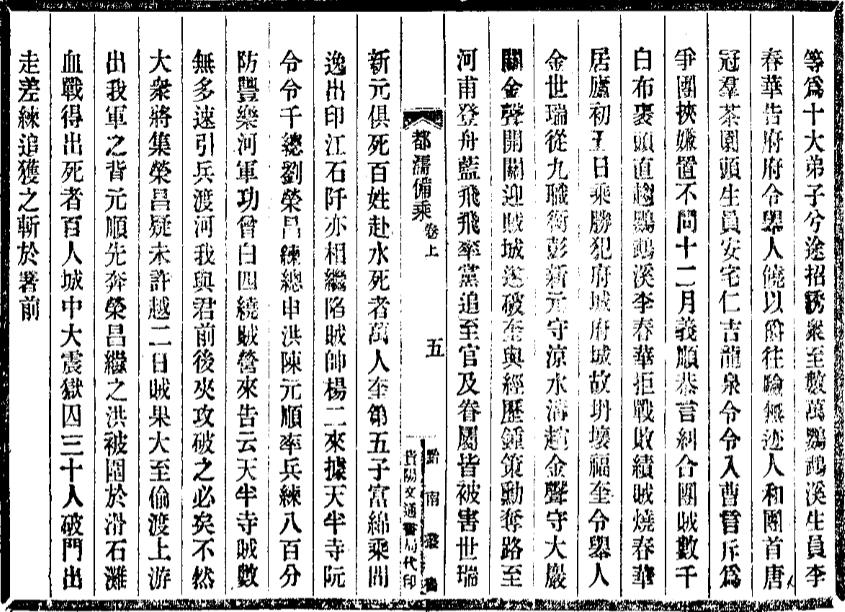 等爲十大弟子分途招誘衆至數萬鸚鵡溪生員李
春華告府府令舉人饒以爵往驗無迹人和團首唐
冠羣茶園頭生員安宅仁吉龍泉令令入曹嘗斥爲
爭團挾嫌置不問十二月義順恭言糾合團賊數千
白布裹頭直趨鸚鵡溪李春華拒戰敗績賊燒春華
居廬初五日乘勝犯府城府城故坍壞福奎令舉人
金世瑞從九職銜彭新元守涼水溝趙金聲守大巖
關金聲開關迎賊城遂破奎與經歷鍾策動奪路至
河甫登舟藍飛飛率黨追至官及眷屬皆被害世瑞
都濡備乘 卷上 五 黔南叢書 貴陽文通書局代印
新元俱死百姓赴水死者萬人奎第五子富綿乘間
逸出印江石阡亦相繼陷賊帥楊二來據天半寺阮
令令千總劉榮昌練總申洪陳元順率兵練八百分
防豐樂河軍功曾白四繞賊營來告云天半寺賊數
無多速引兵渡河我與君前後夾攻破之必矣不然
大衆將集榮昌疑未許越二日賊果大至偷渡上游
出我軍之背元順先奔榮昌繼之洪被圍於滑石灘
血戰得出死者百人城中大震獄囚三十人破門出
走差練追獲之斬於署前